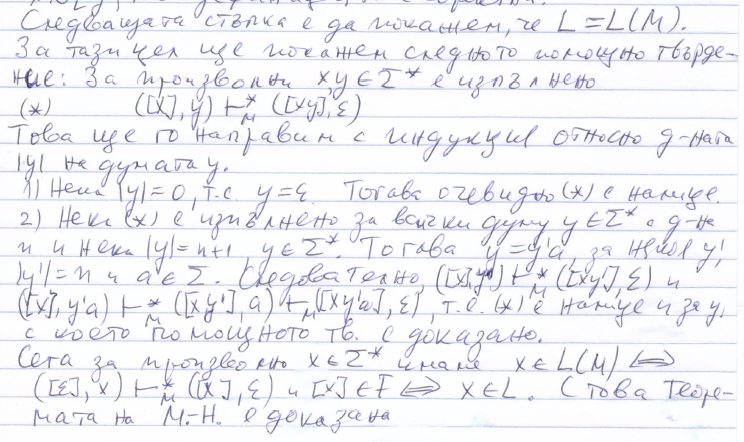 Следващата стъпка е да покажем, че L = L(M).
За тази цел ще покажем следното помощно твърде-
ние: За произволни x,y ∈ Σ* е изпълнено
(*) ([x],y) ⊢*_M ([xy],ε)
Това ще го направим с индукция относно д-ната
|y| на думата y.
1) Нека |y|=0, т.е. y=ε. Тогава очевидно (*) е налице.
2) Нека (*) е изпълнено за всички думи y∈Σ* с д-на
n и нека |y|=n+1, y∈Σ*. Тогава y=y'a, за някоя y',
|y'|=n и a∈Σ. Следователно, ([x],y') ⊢*_M ([xy'],ε) и
([x],y'a) ⊢*_M ([xy'],a) ⊢_M ([xy'a],ε), т.е. (*) е налице и за y,
с което помощното тв. е доказано.
Сега за произволно x∈Σ* имаме x∈L(M) ⟺
([ε],x) ⊢*_M ([x],ε) и [x]∈F ⟺ x∈L. С това теоре-
мата на М.-Н. е доказана